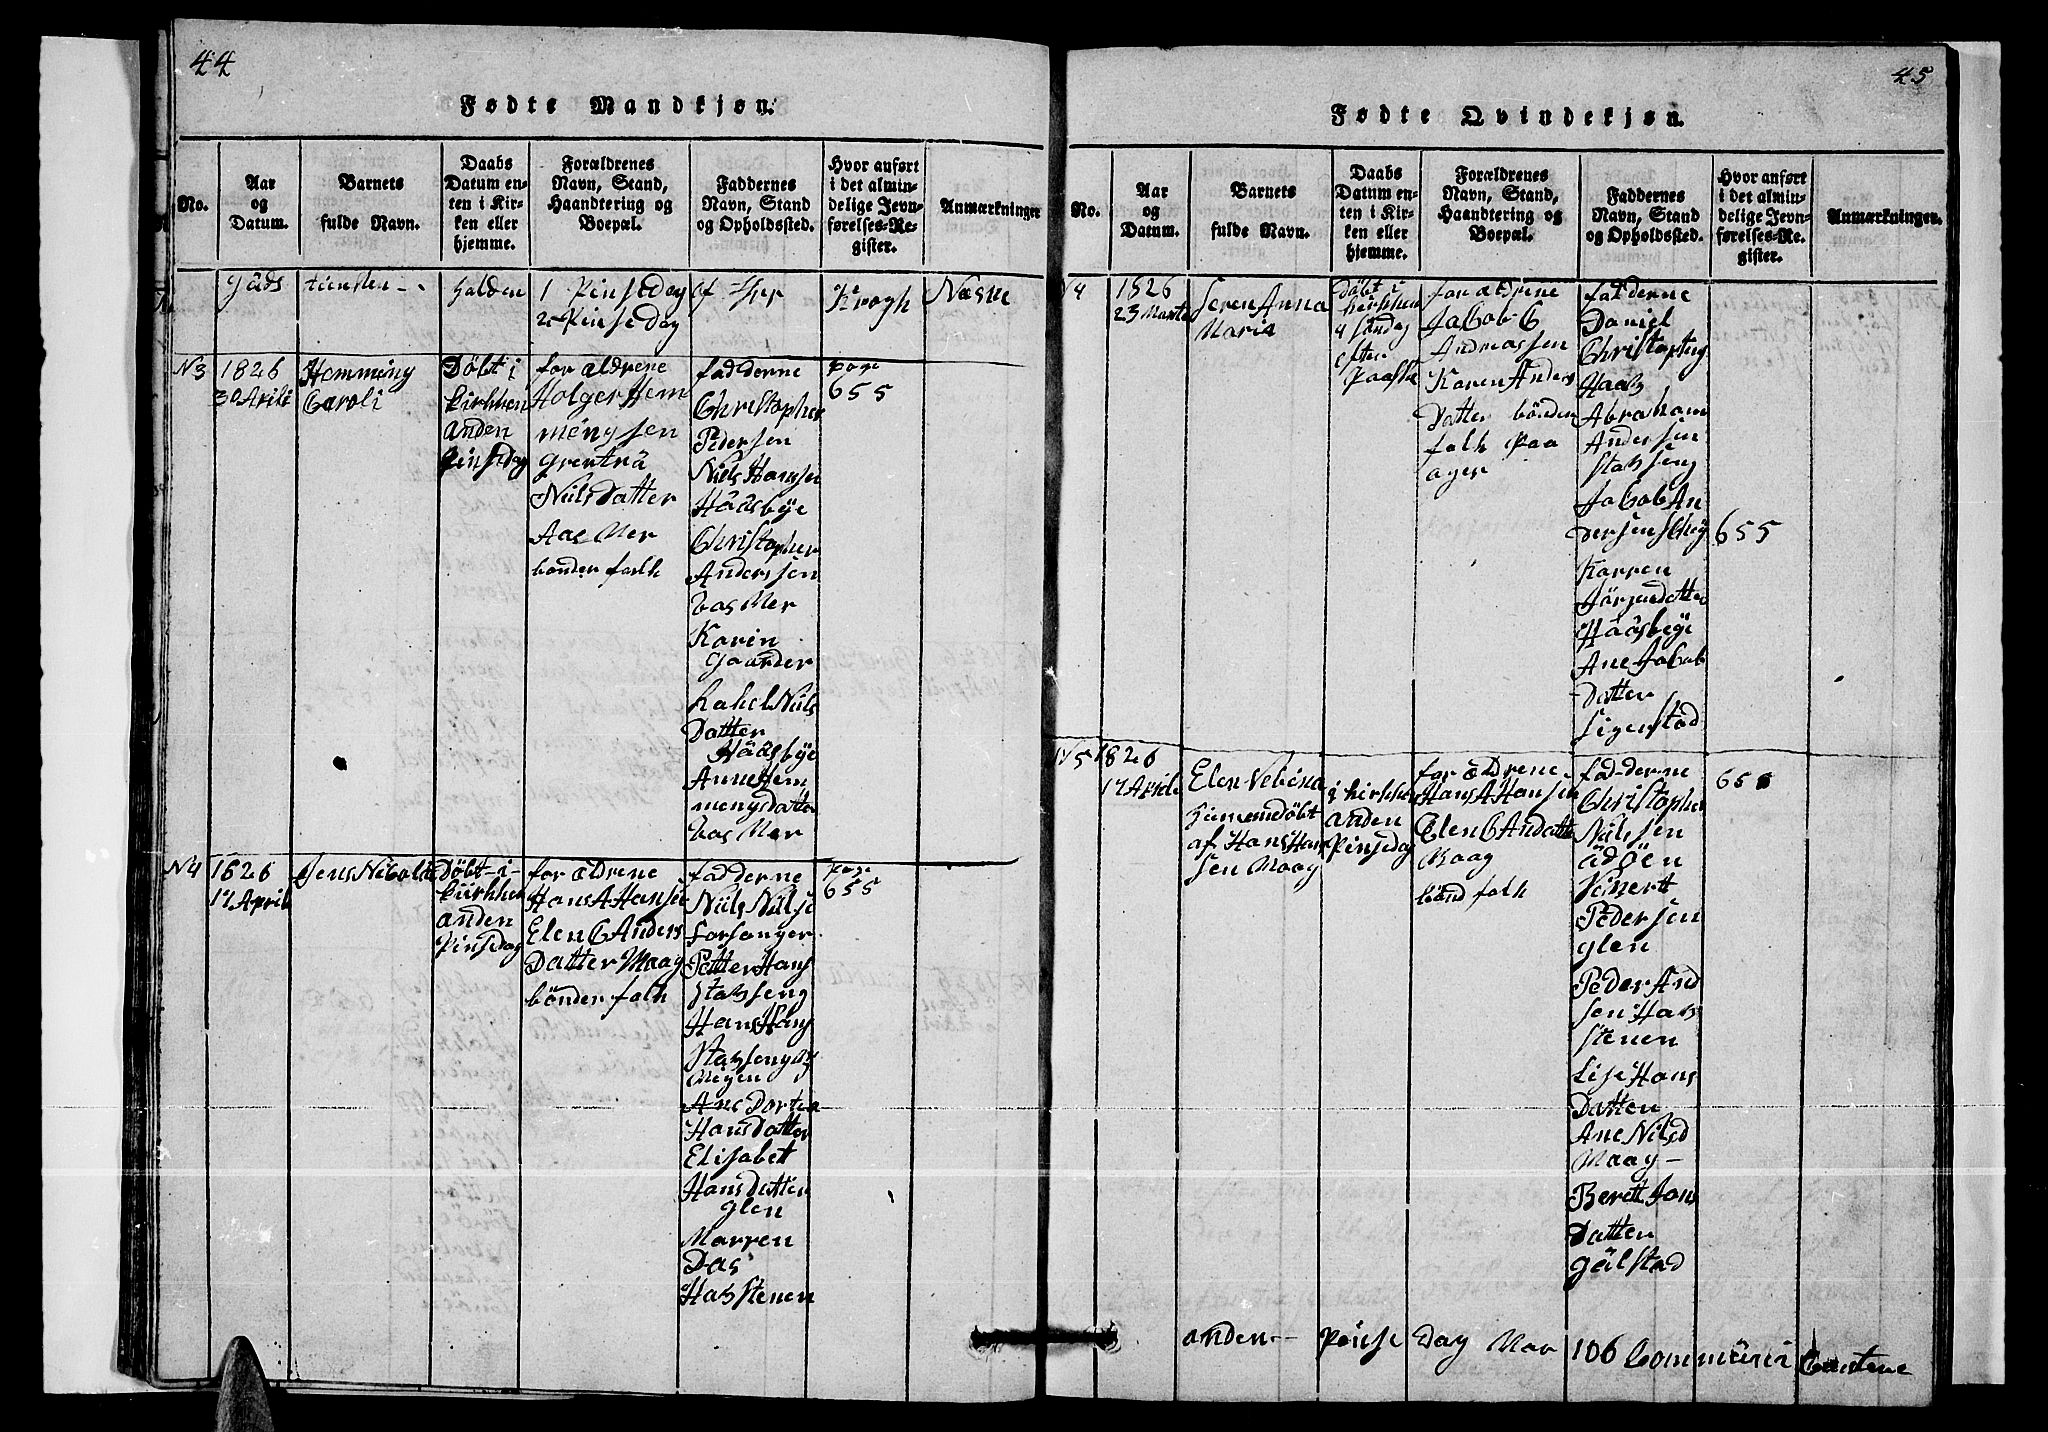 44
Fødte Mandkjøn.
No.
Aar
og
Datum.
Barnets
fulde Navn.
Daabs
Datum en-
ten i Kir-
ken eller
hjemme.
Forældrenes
Navn, Stand,
Haandtering og
Boepæl.
Faddernes
Navn, Stand
og Opholdssted.
Hvor anført
i det almin-
delige Jevn-
førelses-Re-
gister.
Anmærkninger
holden
1 Pinsedag
2 Pinsedag
af Herr
Krogh
Næsne
N3
1826
30 Aprili
Hemming
Caroli
Døbt i
kirkken
anden
Pinsedag
for ældrene
Holger Hem
mengsen
Nilsdatter
Aasmer
bønder falk
fadderne
Christopher
Pedersen
Niels Hansen
Hääsbye
Christopher
Anderssen
basmer
Karin
Gaarder
Rahel Nils
Datter
Hääsbye
Anne Hem
mengsdatter
basmer
pag
655
N4
1826
17 April
Jens Nibold
Døbt i
kirkken
anden
Pinsedag
for ældrene
Hans A Hansen
Elen C Anders
Datter Maag
bønder falk
fadderne
Niils Nilse
forsanger
Petter Hans
stabseng
Hans Hans
stabseng
Ane Dorten
Hansdatter
Elisabet
Hansdatter
glen
Marren
Das
Habstenen
pag
655
45
Fødte Qvindekjøn.
No.
Aar
og
Datum.
Barnets
fulde Navn.
Daabs
Datum en-
ten i Kir-
ken eller
hjemme.
Forældrenes
Navn, Stand,
Haandtering og
Boepæl.
Faddernes
Navn, Stand
og Opholdssted.
Hvor anført
i det almin-
delige Jevn-
førelses-Re-
gister.
Anmærkninger.
N4
1826
23 Marts
Seren Anna
Maria
Døbt i
kirkken
4 søndag
efter
Paaske
for ældrene
Jacob C
Andreassen
Karen Anders
Datter bønder
falk paa
ager
fadderne
Daniel
Haab
Abraham
Andersen
stabseng
Jacob An
dersen
Karren
Jörgendatter
Hääsbeye
Ane Jacob
Datter
Sigerstad
655
N5
1826
17 Aprile
Elen Nebina
hiemmedøbt
af Hans Han
sen Maag
i kirkken
anden
Pinsedag
for ældrene
Hans A Hansen
Elen C Andatter
Maag
bønd falk
fadderne
Christopher
Nilssen
Pedersen
glen
Peder And
sen Hab
stenen
Lise Hans
Datter
Ane Nilsd
Maag
Berett Jan
Datter
655
anden Peinse Day Var 106 Communi Cantene